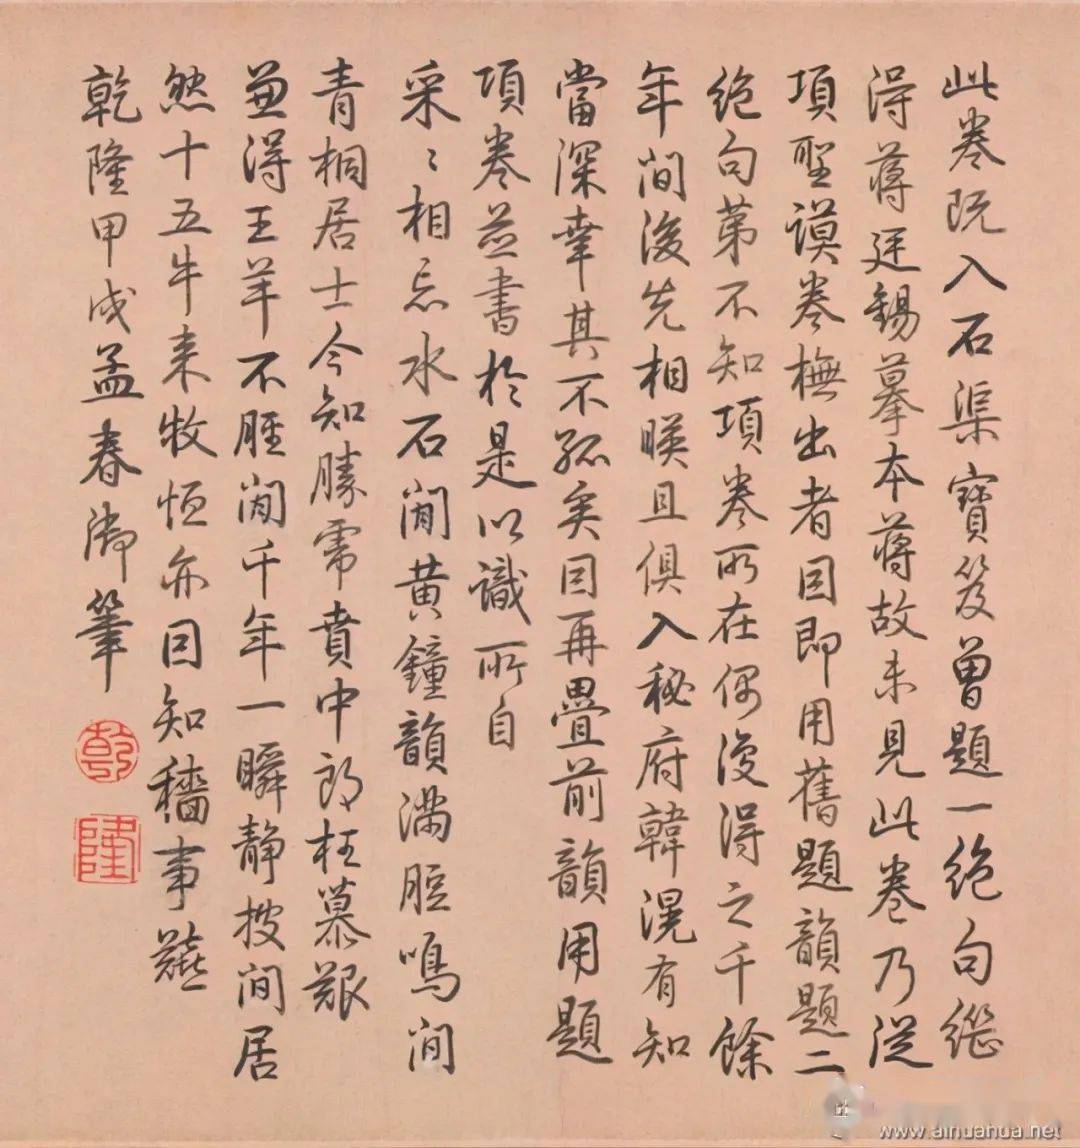 此卷既入石渠寶笈曾題一絶句繼
得蔣廷錫摹本蔣故未見此卷乃從
項聖謨卷橅出者因即用舊題韻題二
絶句第不知項卷所在偶復得之千餘
年間後先相暎且俱入秘府韓滉有知
當深幸其不孤矣因再疊前韻用題
項卷並書於是以識所自
采〻相忘水石閒黄鐘韻滿脰鳴間
青桐居士今知勝需賁中郎枉慕艱
兼得王羊不脛閒千年一瞬靜披間居
然十五牛来牧恒亦因知穡事艱
乾隆甲戌孟春御筆
乾
隆
www.ainuahua.net